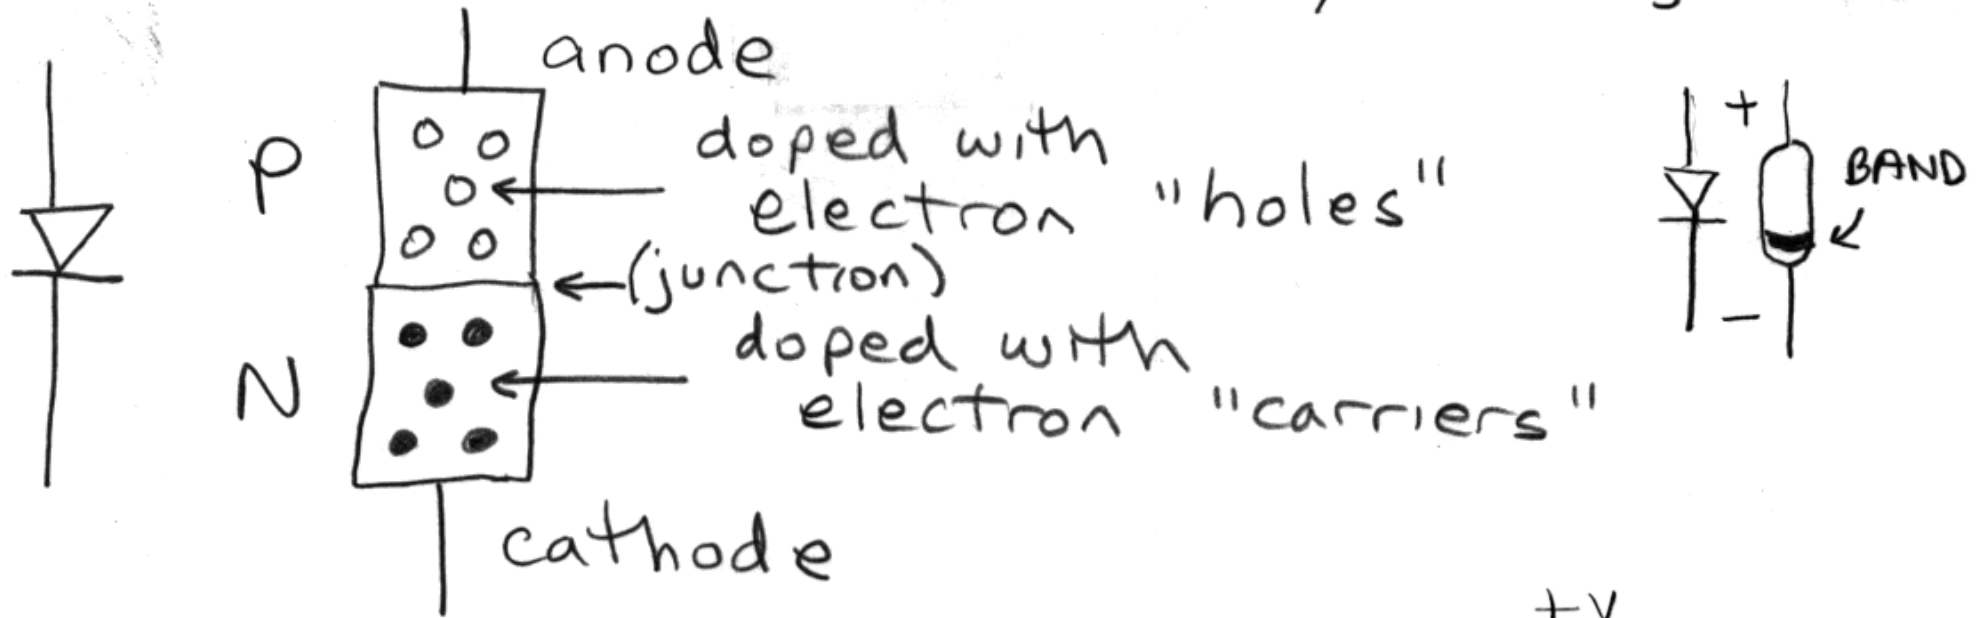 anode
P
doped with
electron "holes"
(junction)
N
doped with
electron "carriers"
cathode
+
BAND
−
+V